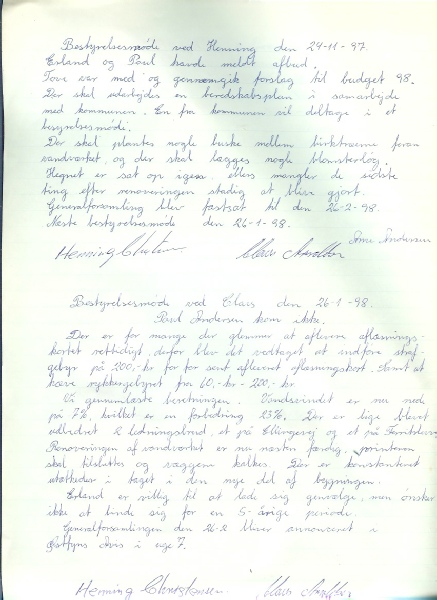 Bestyrelsesmøde ved Henning den 24-11-97.
Erland og Poul havde meldt afbud.
Tove var med og gennemgik forslag til budget 98.
Der skal udarbejdes en beredskabsplan i samarbejde
med kommunen. En fra kommunen vil deltage i et
bestyrelsesmøde.
Der skal plantes nogle buske mellem kirktræerne foran
vandværket, og der skal lægges nogle blomsterløg.
Hegnet er sat op igen, ellers mangler de sidste
ting efter renoveringen stadig at blive gjort.
Generalforsamling blev fastsat til den 26-2-98.
Næste bestyrelsesmøde den 26-1-98.
Henning Claus Andersen
Bestyrelsesmøde ved Claus den 26-1-98.
Poul Andersen kom ikke.
Der er for mange der glemmer at aflevere aflæsnings-
kortet rettidigt, derfor blev det vedtaget at indføre straf-
gebyr på 200,-kr for for sent afleveret aflæsningskort. Samt at
hæve rykkergebyret fra 60,-kr - 200,-kr
Vi gennemlæste beretningen. Vandsvindet er nu nede
på 7% hvilket er en forbedring 23%. Der er lige blevet
udbedret 2 ledningsbrud, et på Ellingevej og et på
Renoveringen af vandværket er nu næsten færdig, printeren
skal tilsluttes og væggene kalkes. Der er konstanteret
utætheder i taget i den nye del af bygningen.
Erland er villig til at lade sig genvælge, men ønsker
ikke at binde sig for en 5-årige periode.
Generalforsamlingen den 26-2 bliver annonceret i
Østfyns Avis i uge 7.
Henning Christensen Claus